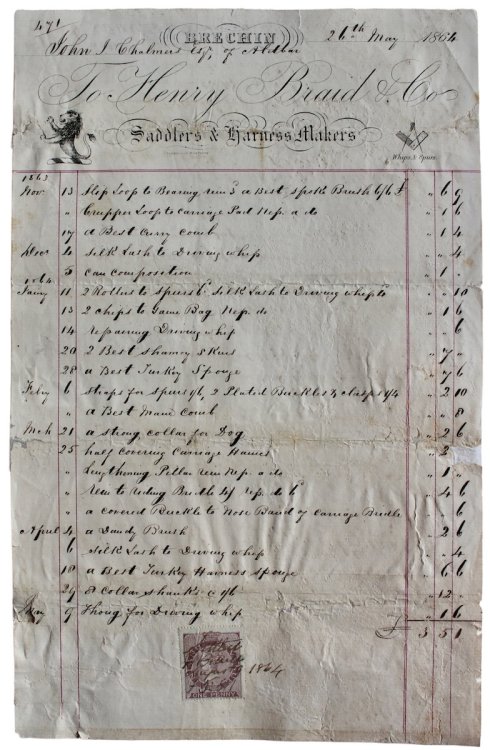 471 BRECHIN 26th May 1864
John I Chalmers Esq, of Aldbar
To Henry Braid & Co
Saddlers & Harness Makers
Whips & Spurs
1863
Novr 13 Step Loop to Bearing rein 3d a Best spoke Brush 6/6 £ " 6 9
" Crupper Loop to Carriage Pad Rep. a do " 1 6
17 a Best Curry Comb " 1 4
Decr 4 Silk Lash to Driving whip " " 4
5 can composition " 1 "
1864
Jany 11 2 Rollers to spurs 6d Silk Lash to Driving whip 4d " " 10
13 2 chips to Game Bag Rep. do " 1 6
14 repairing Driving whip " " 6
20 2 Best Shamoy Skins " 7 "
28 a Best Turkey Sponge " 7 6
Feby 6 straps for spurs 1/6, 2 Plated Buckles & clasps 1/4 " 2 10
" a Best Mane Comb " " 8
Mch 21 a strong collar for Dog " 2 6
25 half covering Carriage Hames " 2
" Lengthening Pillar rein Rep. a do " 1 "
" Rein to Riding Bridle 4/ rep. do 6d " 4 6
" a covered Buckle to Nose Band of Carriage Bridle " " 6
April 4 a Dandy Brush " 2 6
6 Silk Lash to Driving whip " " 4
18 a Best Turkey Harness Sponge " 6 6
29 8 Collar shanks @ 1/6 " 12 "
May 9 Thong for Driving whip " 1 6
£ 3 5 1
1864
ONE PENNY